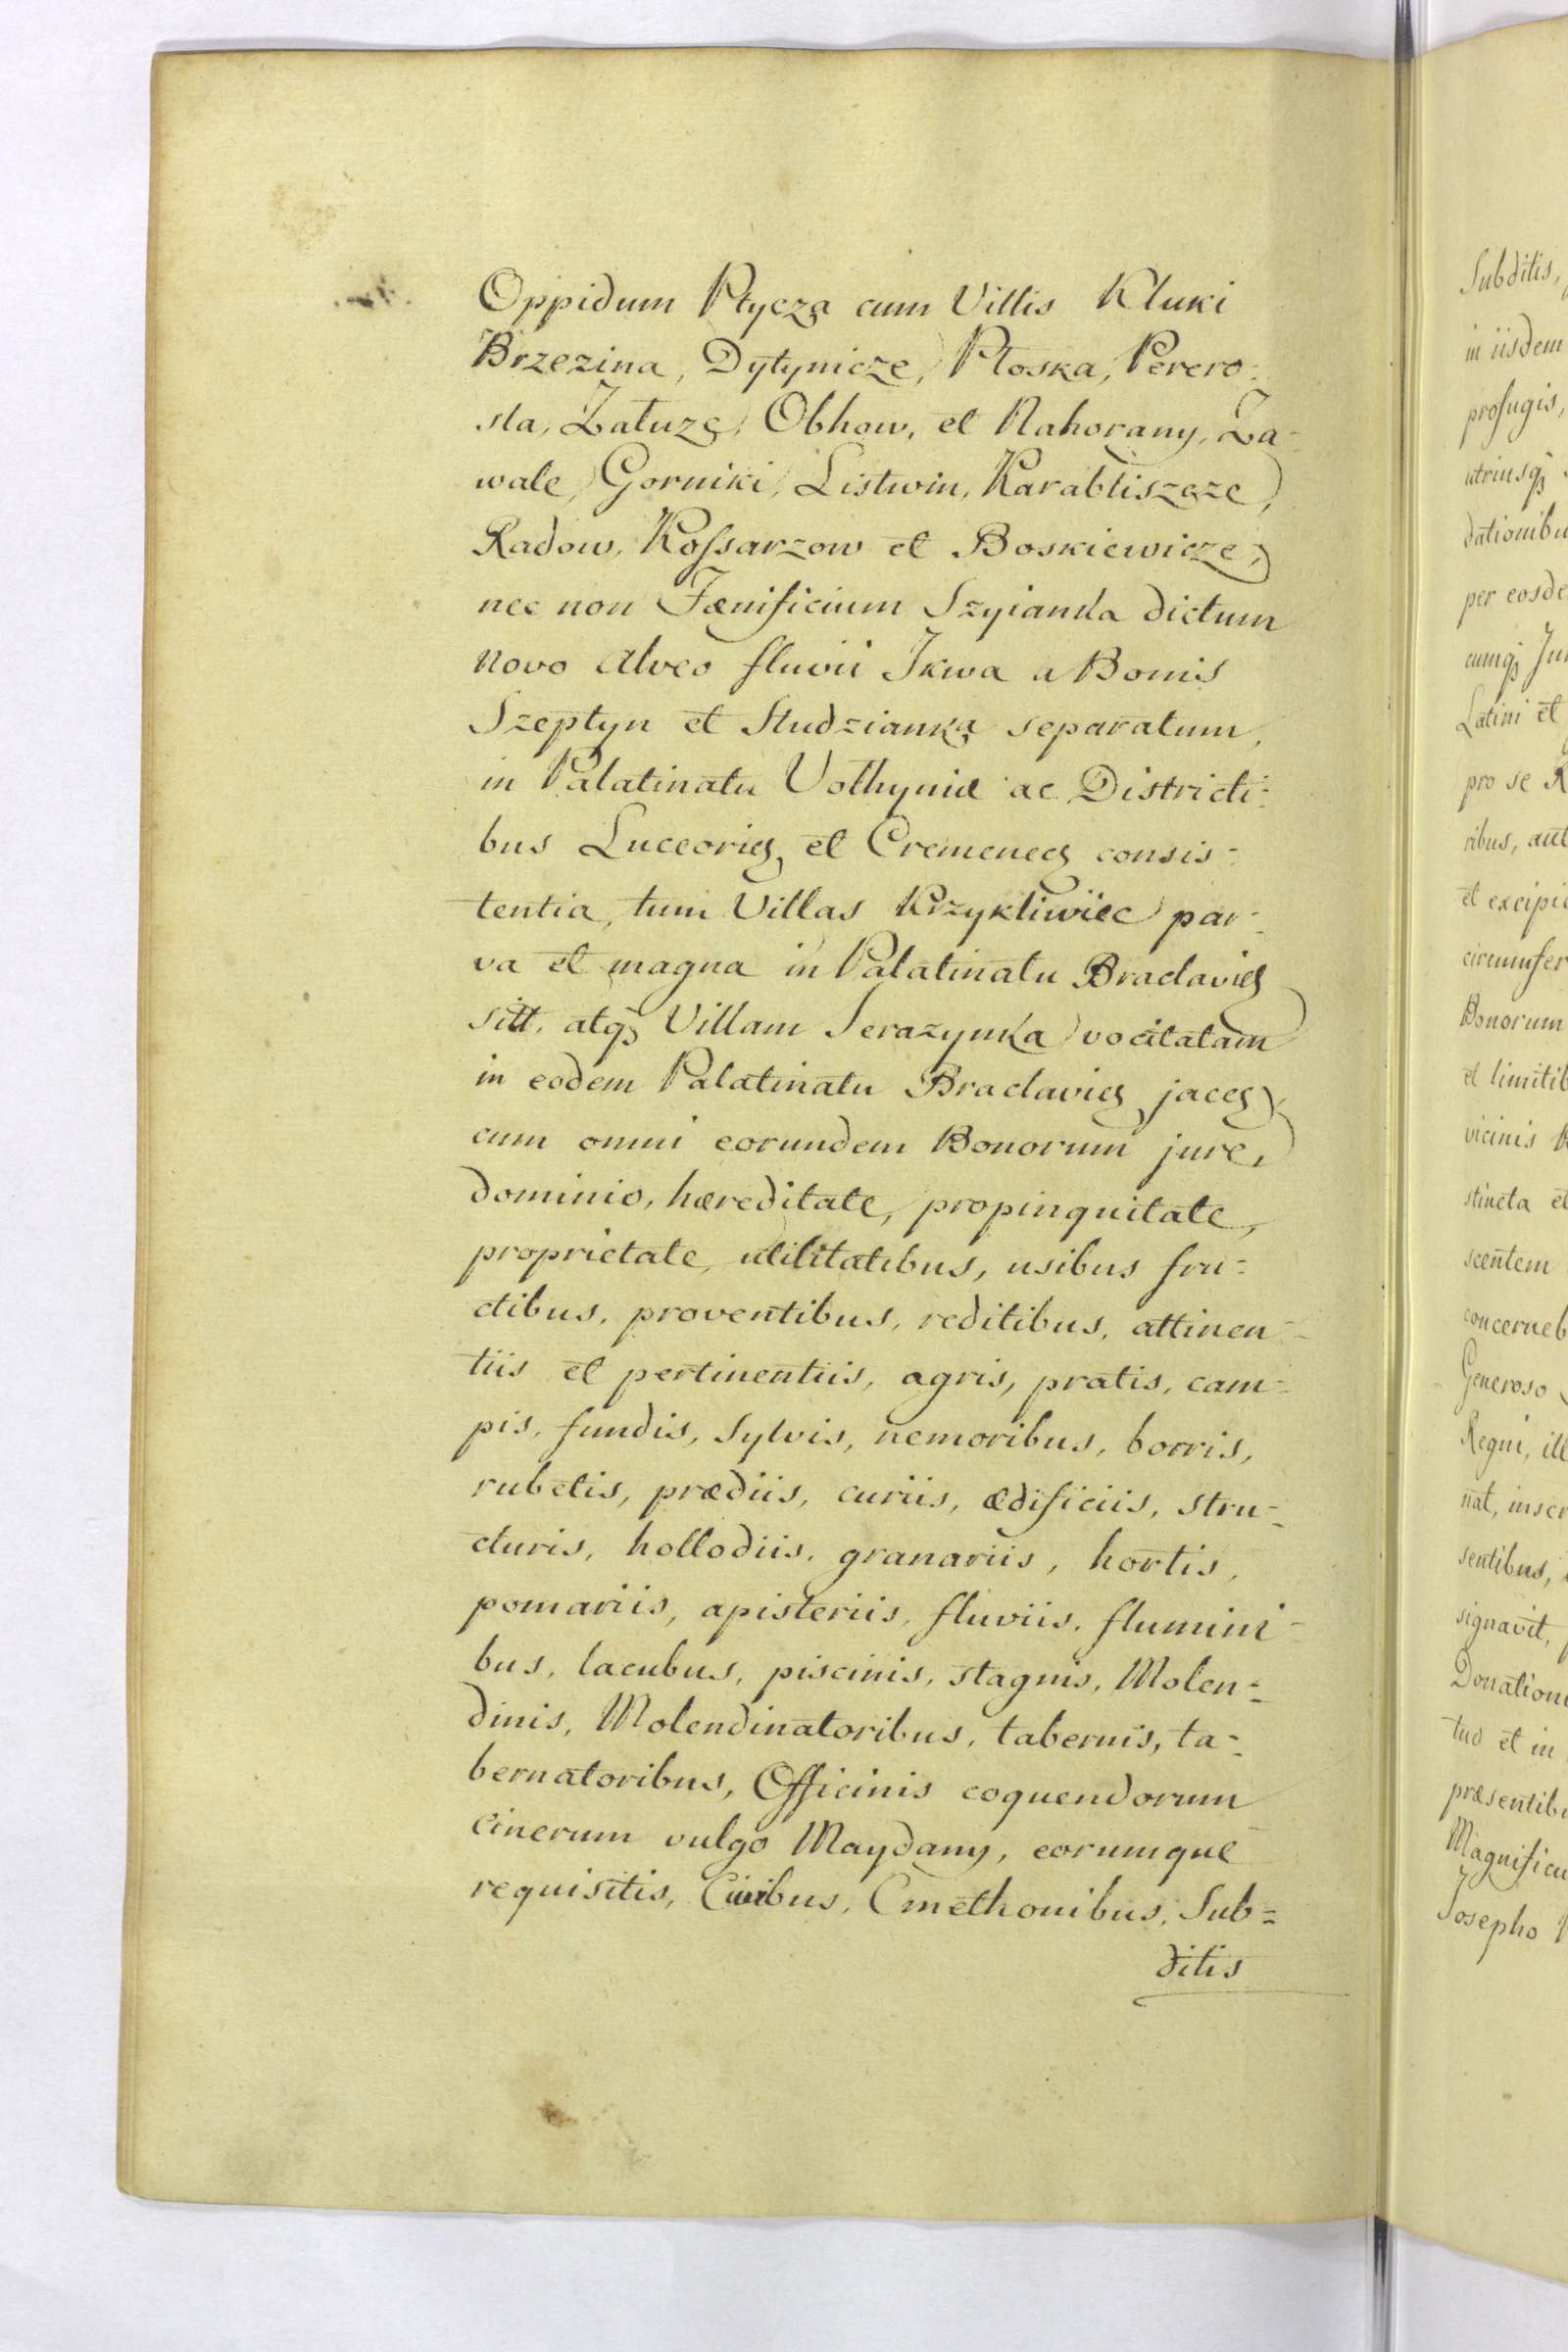 Oppidum Ptycza cum Villis Kluki
Brzezina, Dytynicze, Płoska, Perero-
sla, Załuze, Obhow, et Nahorany, Za-
wale, Gorniki, Listwin, Karabliszcze,
Radow, Kossarzow et Boskiewicze,
nec non Fænificium Szyianka dictum
novo alveo fluvii Ikwa a Bonis
Szeptyn et Studzianka separatum,
in Palatinatu Volhyniæ ac Districti-
bus Luceorieñ et Cremeneceñ consis-
tentia, tum Villas Krzykliwiec par-
va et magna in Palatinatu Braclavieñ
sitt. atq; Villam Serazynka vocitatam
in eodem Palatinatu Braclavieñ jaceñ,
cum omni eorundem Bonorum jure,
dominio, hæreditate, propinquitate,
proprietate, utilitatibus, usibus fru-
ctibus, proventibus, reditibus, attinen-
tiis et pertinentiis, agris, pratis, cam-
pis, fundis, sylvis, nemoribus, borris,
rubetis, prædiis, curiis, ædificiis, stru-
cturis, hollodiis, granariis, hortis,
pomariis, apisteriis, fluviis, flumini-
bus, lacubus, piscinis, stagnis, Molen-
dinis, Molendinatoribus, tabernis, ta-
bernatoribus, Officinis coquendorum
Cinerum vulgo Maydany, eorumque
requisitis, Civibus, Cmethonibus, Sub-
ditis
Subditis,
in iisdem
profugis,
utriusq;
dationibu
per eosde
cumq; Jur
Latini et
pro se
ribus, aut
et excipie
circumfer
Bonorum
et limitib
vicinis
stincta et
scentem
concerneb
Generoso
Regni, ill
nat, inser
sentibus,
signavit,
Donatione
tud et in
præsentibu
Magnificu
Josepho